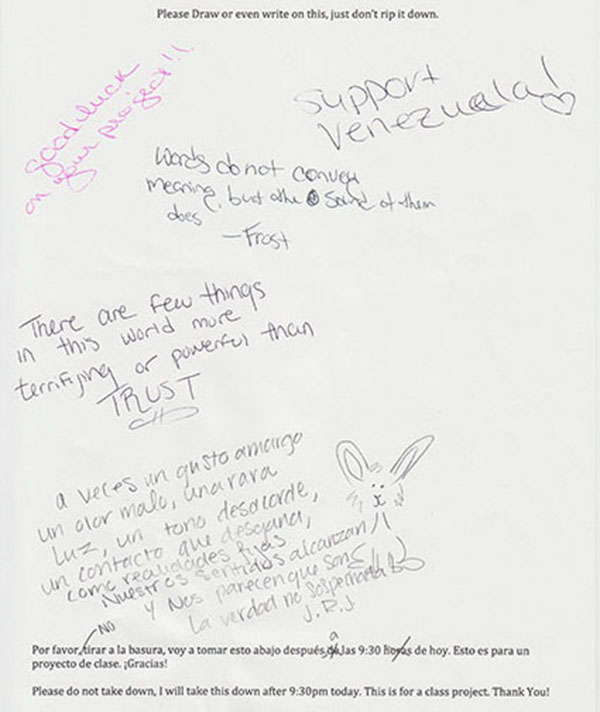 Please Draw or even write on this, just don't rip it down.
good luck
on your project!!
support
venezuela!
Words do not convey
meaning, but the sound of them
does
-Frost
There are few things
in this world more
terrifying or powerful than
TRUST
a veces un gusto amargo
un olor malo, una rara
Luz, un tono desacorde,
un contacto que desgana,
como realidades fijas
Nuestros sentidos alcanzan
y Nos parecen que son
La verdad no sospechada
J.R.J
NO
Por favor, tirar a la basura, voy a tomar esto abajo después a las 9:30 horas de hoy. Esto es para un
proyecto de clase. ¡Gracias!
Please do not take down, I will take this down after 9:30pm today. This is for a class project. Thank You!